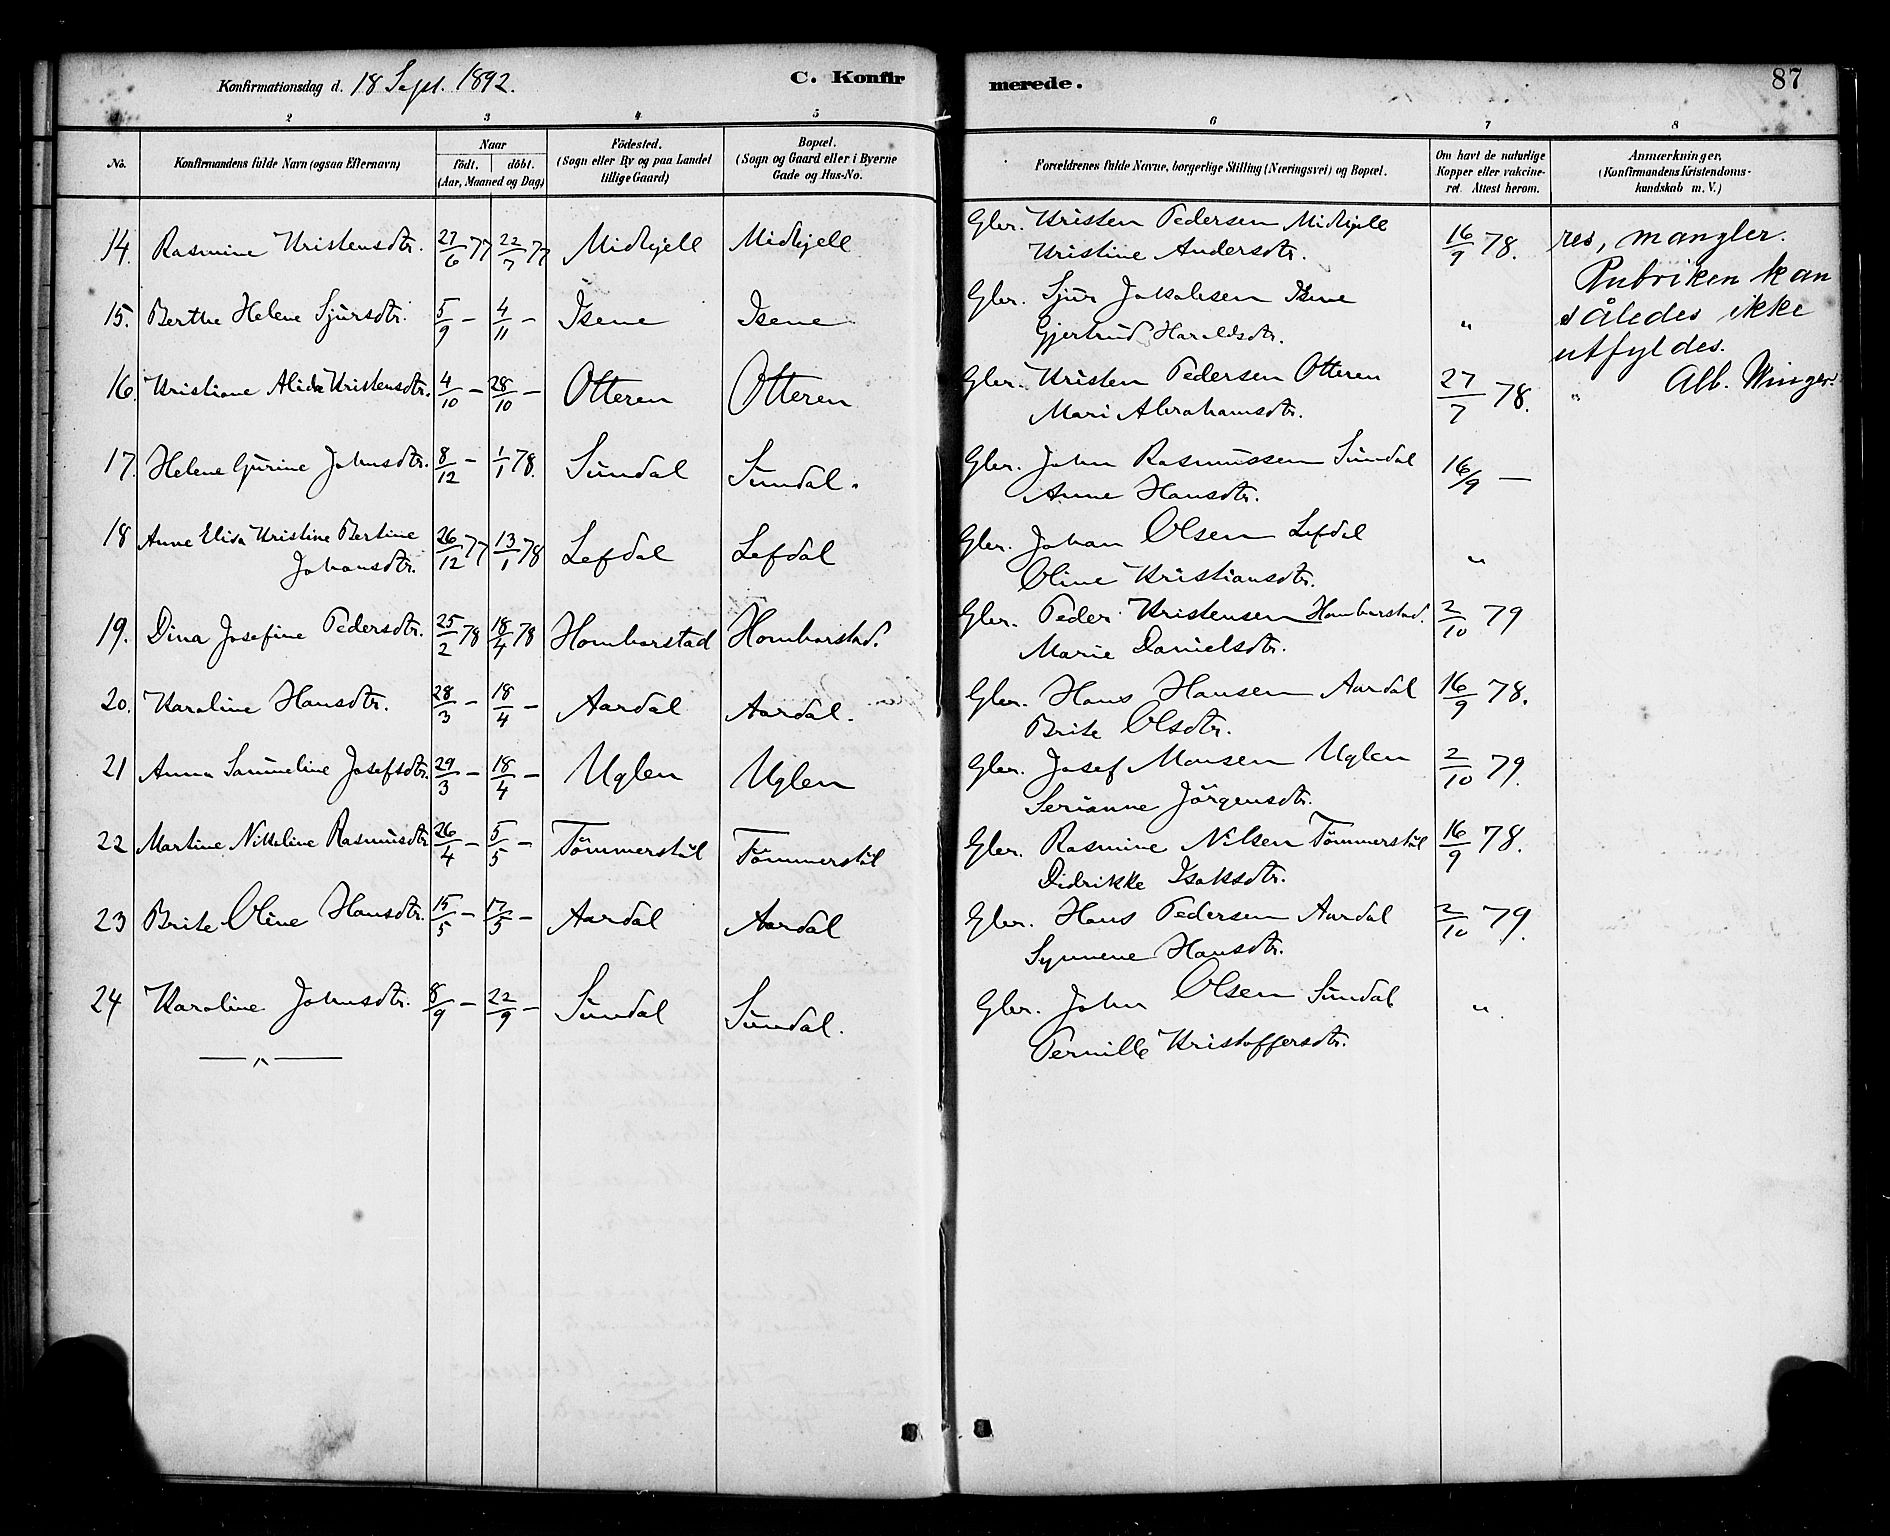 Konfirmationsdag d. 18 Sept. 1892.
C. Konfir
merede.
87
2 3 4 5 6 7 8
No.
Konfirmandens fulde Navn (ogsaa Efternavn)
Naar
födt. döbt.
(Aar, Maaned og Dag)
Födested.
(Sogn eller By og paa Landet
tillige Gaard)
Bopæl.
(Sogn og Gaard eller i Byerne
Gade og Hus-No.
Forældrenes fulde Navne, borgerlige Stilling (Næringsvei) og Bopæl.
Om havt de naturlige
Kopper eller vakcine-
ret. Attest herom.
Anmærkninger,
(Konfirmandens Kristendoms-
kundskab m. V.)
14. Rasmine Kristensdtr. 27/6 77 22/7 77 Midhjell Midhjell Gbr. Kristen Pedersen Midhjell 16/9 78. res, mangler.
Kristine Andersdtr.
Rubriken kan
15. Berthe Helene Sjursdtr. 5/9 — 4/11 — Isene Isene Gbr. Sjur Jakobsen Isene " således ikke
Gjertrud Haraldsdtr.
utfyldes.
16. Kristiane Alida Kristensdtr. 4/10 — 28/10 — Otteren Otteren Gbr. Kristen Pedersen Otteren 27/7 78. " Alb. Winger.
Mari Abrahamsdtr.
17. Helene Gurine Johnsdtr. 8/12 — 1/1 78. Sundal Sundal. Gbr. John Rasmussen Sundal 16/9 —
Anne Hansdtr.
18 Anne Elisa Kristine Bertine 26/12 77 13/1 78 Lefdal Lefdal Gbr. Johan Olsen Lefdal "
Johansdtr. Oline Kristiansdtr.
19. Dina Josefine Pedersdtr. 25/2 78 18/4 78 Homborstad Homborstad. Gbr. Peder Kristensen Homborstad. 2/10 79
Marie Danielsdtr.
20. Karoline Hansdtr. 28/3 — 18/4 — Aardal Aardal. Gbr. Hans Hansen Aardal 16/9 78.
Brite Olsdtr.
21 Anna Samueline Josefsdtr. 29/3 — 18/4 — Uglen Uglen Gbr. Josef Monsen Uglen 2/10 79.
Serianne Jörgensdtr.
22 Martine Nikoline Rasmusdtr 26/4 — 5/5 — Tömmerstöl Tömmerstöl Gbr. Rasmine Nilsen Tömmerstöl 16/9 78.
Didrikke Isaksdtr.
23 Brite Oline Hansdtr. 15/5 — 17/5 — Aardal Aardal Gbr. Hans Pedersen Aardal 2/10 79.
Synnene Hansdtr.
24 Karoline Johnsdtr. 8/9 — 22/9 — Sundal Sundal. Gbr. John Olsen Sundal ".
Pernille Kristoffersdtr.